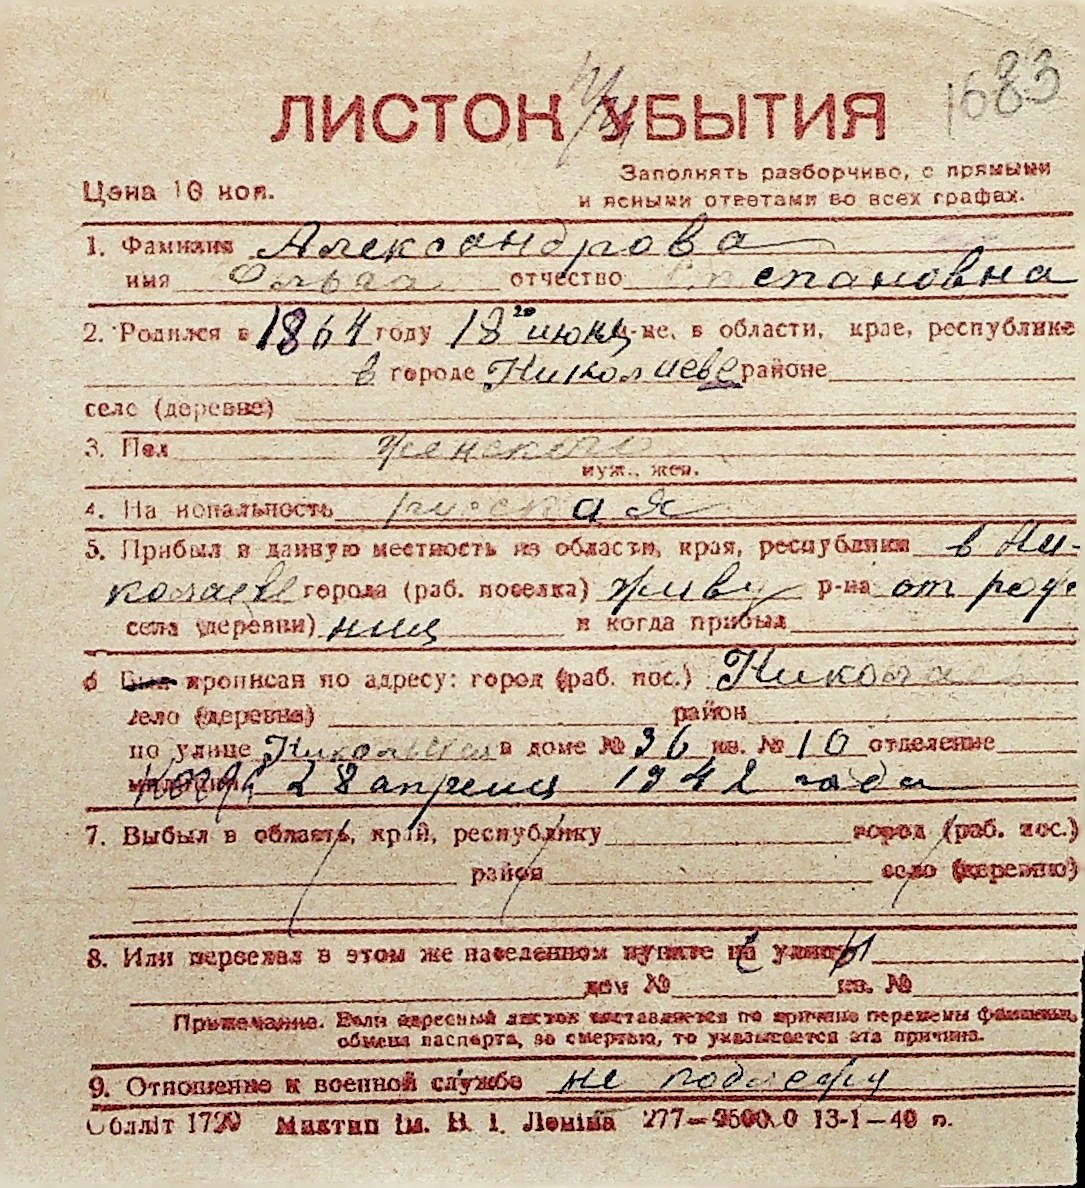 1683
ЛИСТОК УБЫТИЯ
Цена 10 коп.
Заполнять разборчиво, с прямыми
и ясными ответами во всех графах.
1. Фамилия Александрова
имя Ольга отчество Степановна
2. Родился в 1864 году 18 20 июня м-це, в области, крае, республике
в городе Николаеве районе
село (деревне)
3. Пол женского
муж., жен.
4. Национальность русская
5. Прибыл в данную местность из области, края, республики в Ни-
колаеве города (раб. поселка) живу р-на от рож
села (деревни) ниц и когда прибыл
6 Был прописан по адресу: город (раб. пос.) Николаев
село (деревня) район
по улице Никольская в доме № 36 кв. № 10 отделение
милиции когда 28 апреля 1942 года
7. Выбыл в область, край, республику город (раб. пос.)
район село (деревню)
8. Или переехал в этом же населенном пункте с улицы
дом № кв. №
Примечание. Если адресный листок составляется по причине перемены фамилии,
обмена паспорта, за смертью, то указывается эта причина.
9. Отношение к военной службе не подлежу
Обллiт 1720 Миктип iм. В. I. Ленiна 277— 13-1—40 п.